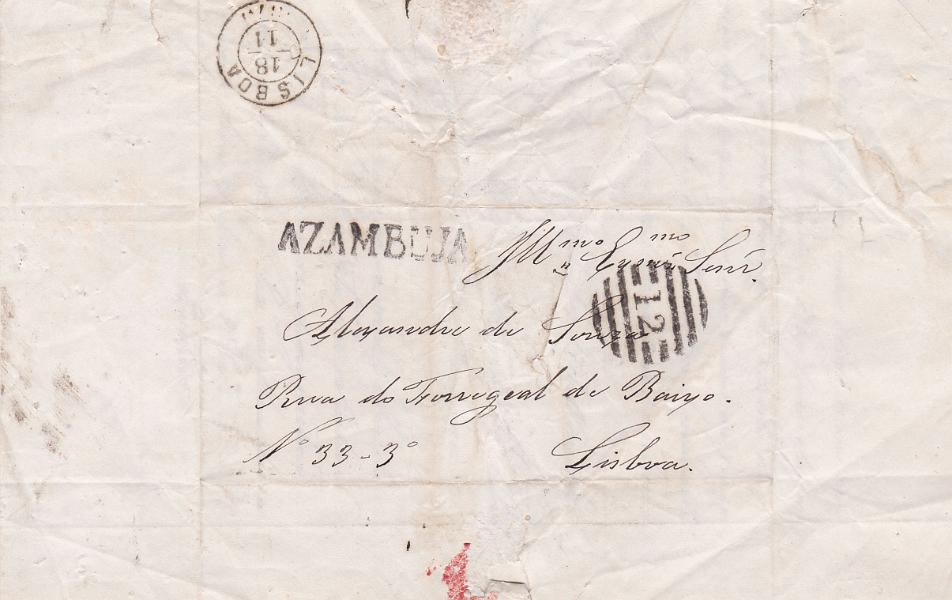 LISBOA
18
11
AZAMBUJA
Illmo Exmo Senr.
12
Alexandre de Souza
Rua do Ferregeal de Baixo.
No 33-3o
Lisboa.